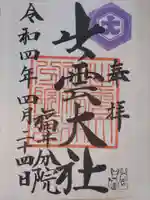 奉拝
出雲大社
福井分院
令和四年四月二十四日